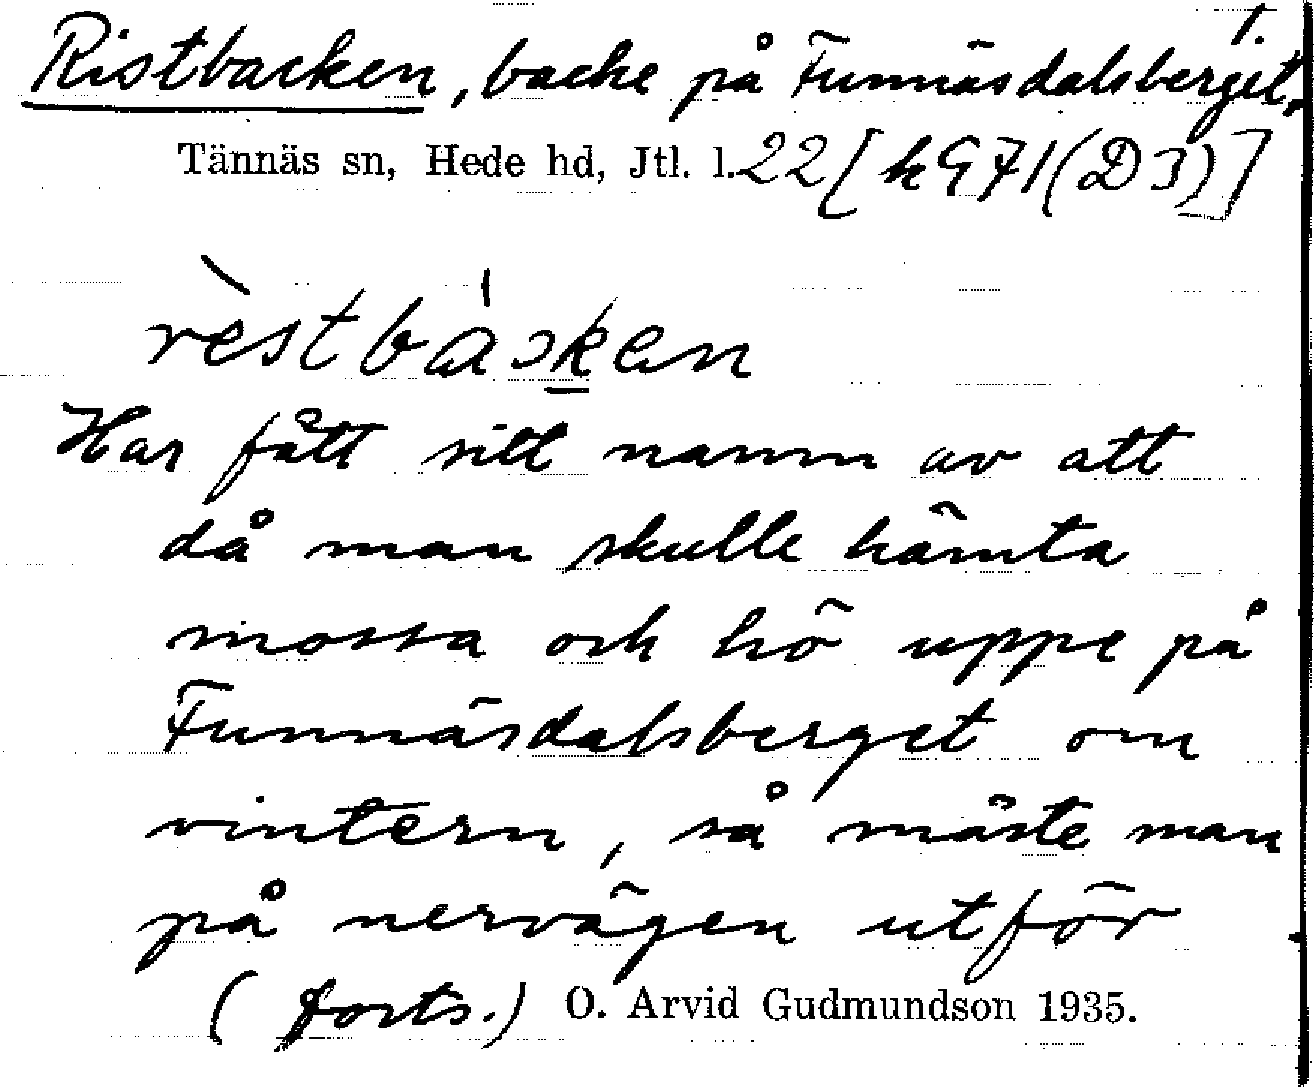 1.
Ristbacken, backe på Funnäsdalsberget,
Tännäs sn, Hede hd, Jtl. l. 22 [k 971 (D3)]
rèstbácken
Har fått sitt namn av att
då man skulle hämta
mossa och hö uppe på
Funnäsdalsberget om
vintern, så måste man
på nervägen utför
(forts.) O. Arvid Gudmundson 1935.